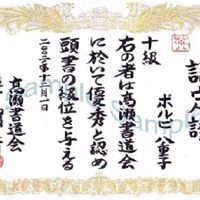 認定証
十級
ボルピ 八重子
右の者は髙瀬書道会
に於いて優秀と認め
頭書の級位を与える
二〇〇三年十一月一日
髙瀬書道会
Sample